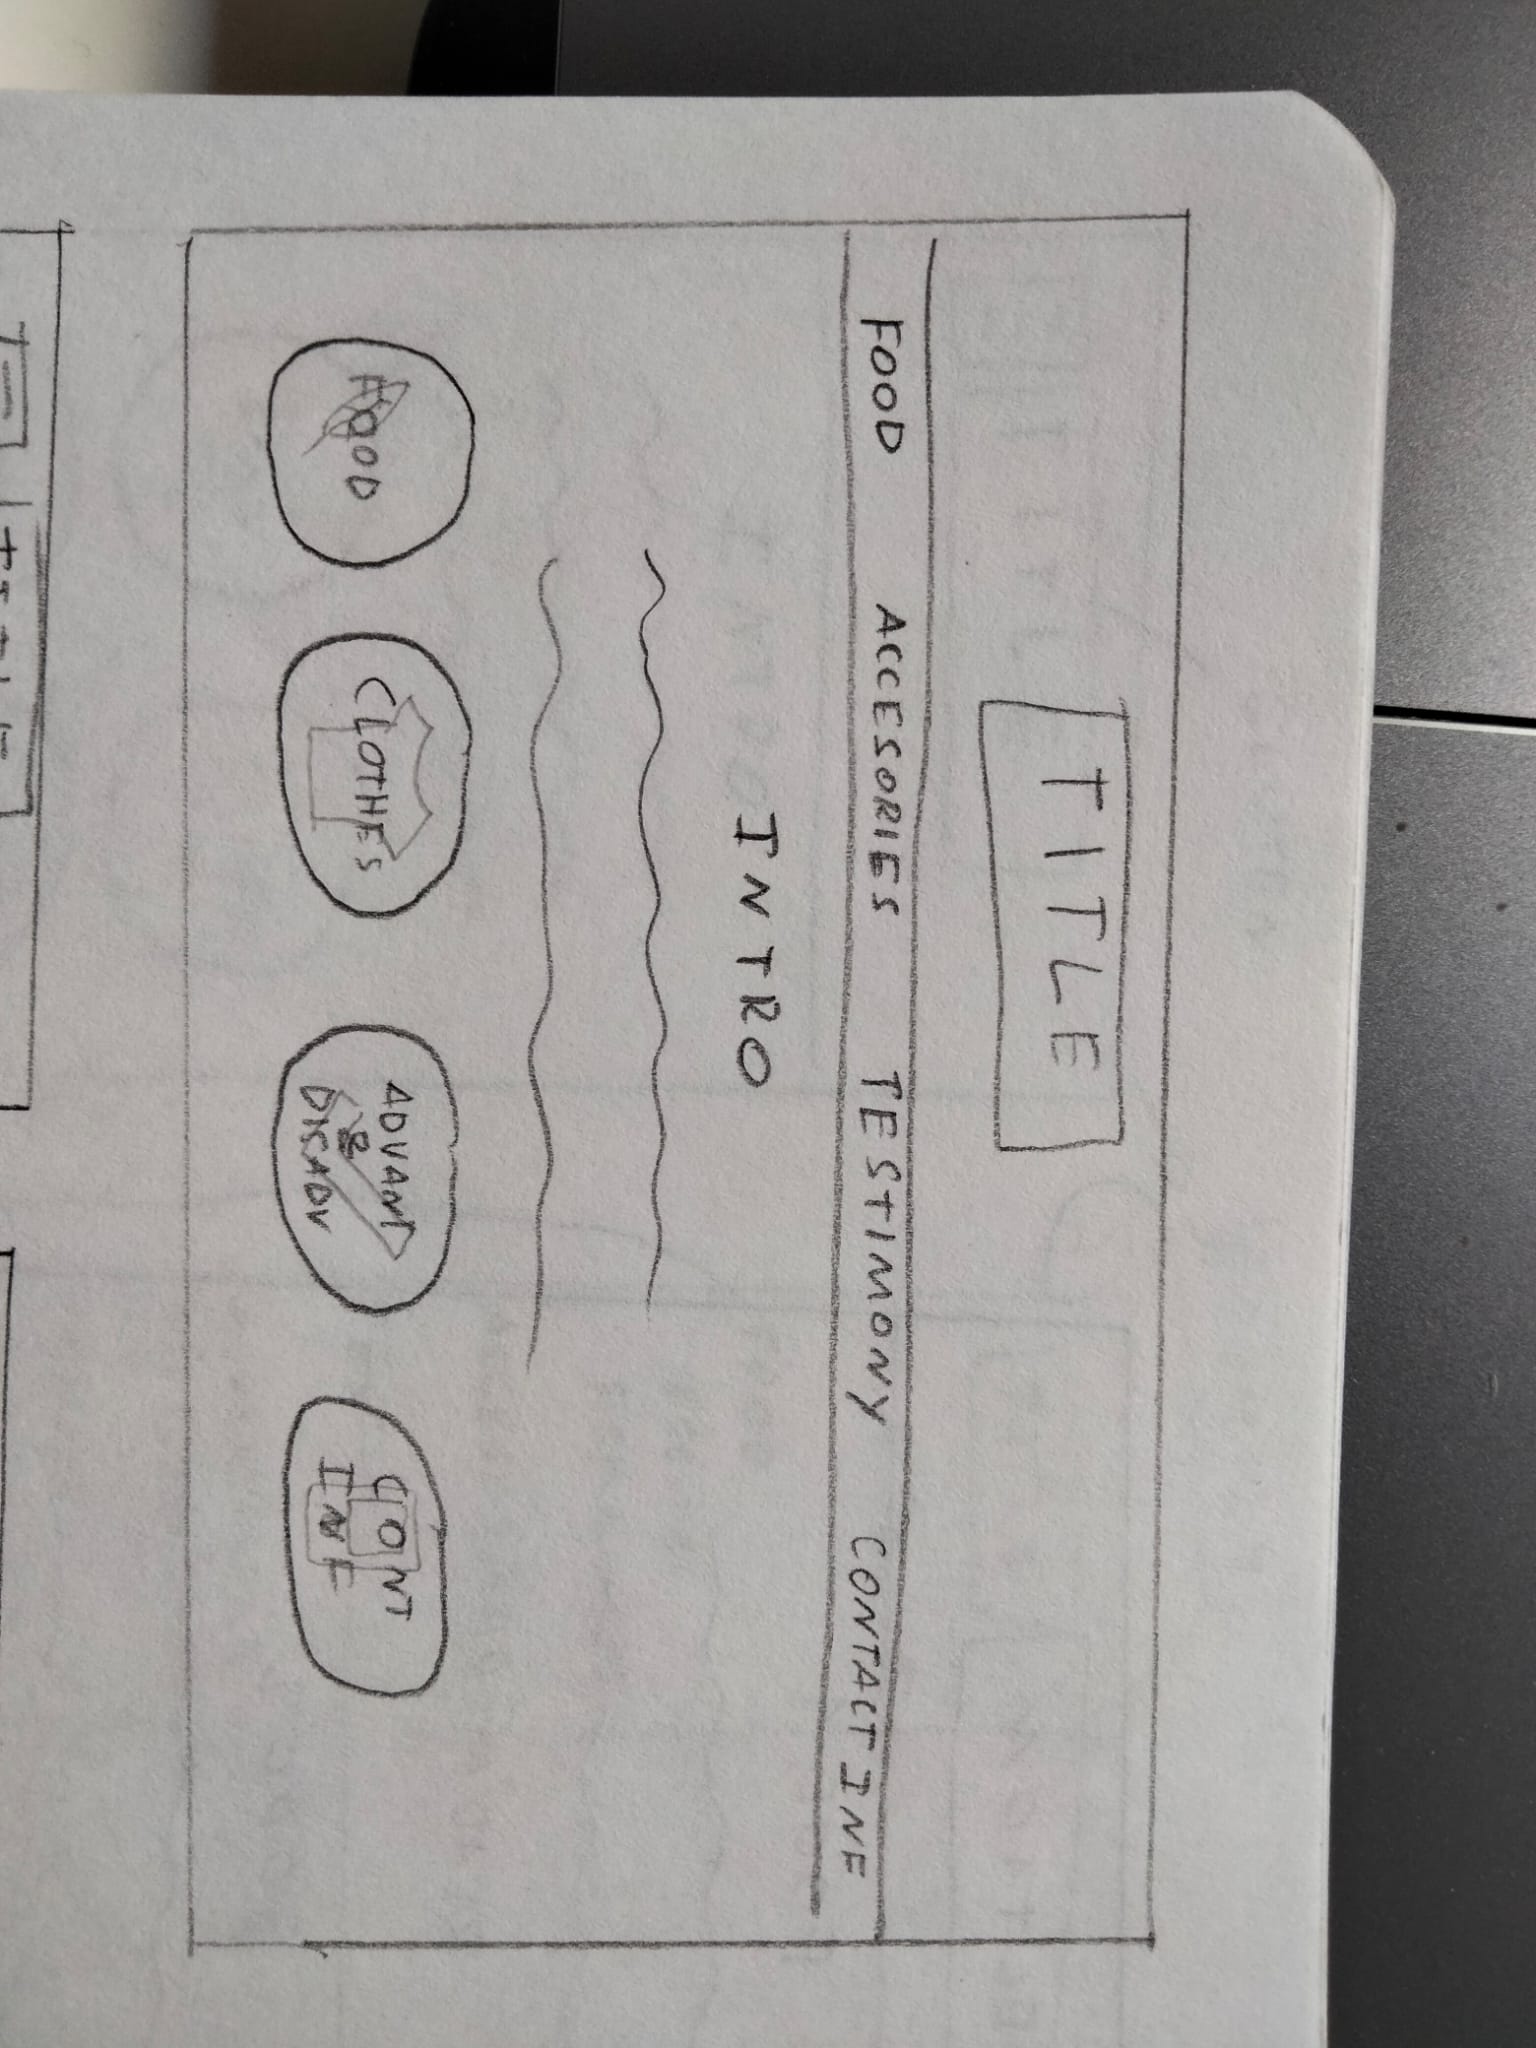 TITLE
FOOD ACCESORIES TESTIMONY CONTACT INF
INTRO
FOOD
CLOTHES
ADVANT
&
DISADV
CONT
INF